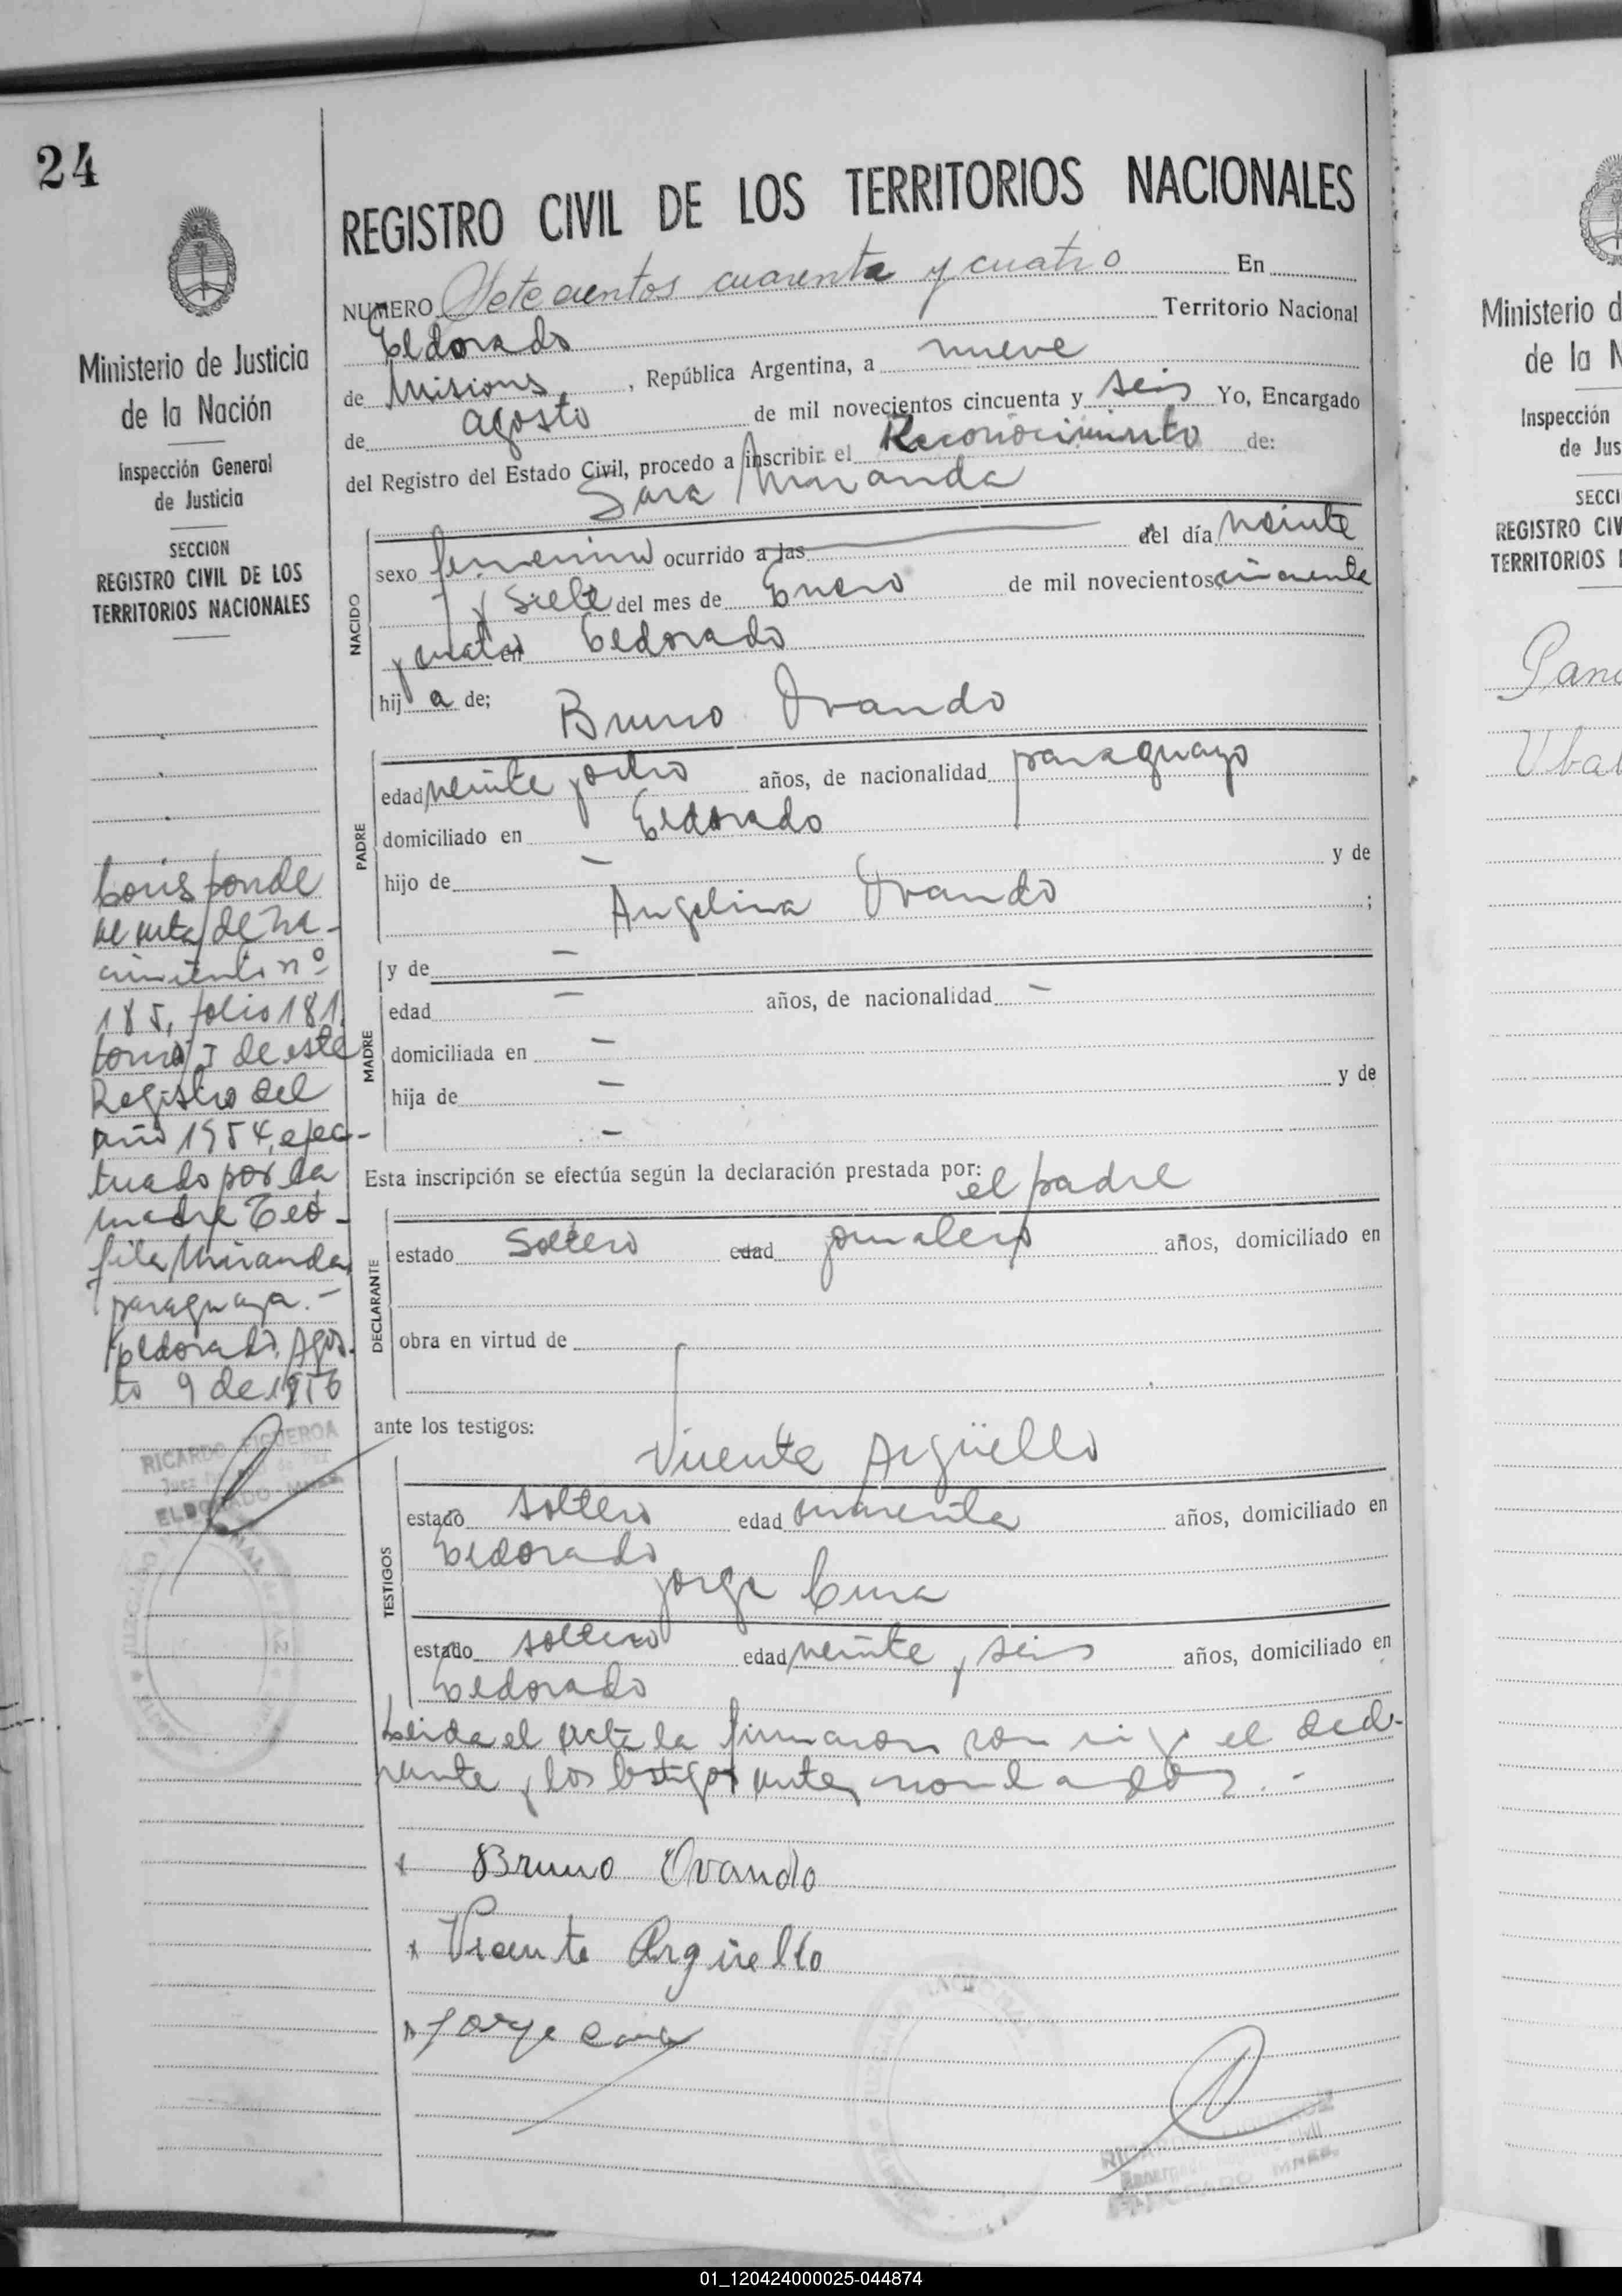 24
REGISTRO CIVIL DE LOS TERRITORIOS NACIONALES
NUMERO Setecientos cuarenta y cuatro En
Eldorado Territorio Nacional
de Misiones, República Argentina, a nueve
de agosto de mil novecientos cincuenta y seis Yo, Encargado
del Registro del Estado Civil, procedo a inscribir el Reconocimiento de:
Sara Miranda
NACIDO
sexo femenino ocurrido a las del día veinte
y siete del mes de Enero de mil novecientos cincuenta
y cuatro en Eldorado
hij a de;
Bruno Ovando
PADRE
edad veinte y ocho años, de nacionalidad paraguayo
domiciliado en Eldorado
hijo de — y de
Angelina Ovando ;
y de —
MADRE
edad — años, de nacionalidad —
domiciliada en —
hija de — y de
—
Esta inscripción se efectúa según la declaración prestada por:
el padre
DECLARANTE
estado Soltero edad jornalero años, domiciliado en
obra en virtud de
ante los testigos:
Vicente Argüello
TESTIGOS
estado soltero edad cuarenta años, domiciliado en
Eldorado
Jorge
estado soltero edad veinte y seis años, domiciliado en
Eldorado
Leida el acta la firmaron con mi y el decla-
rante y los testigos antes nombrados.-
x Bruno Ovando
x Vicente Argüello
x Jorge
Ministerio de Justicia
de la Nación
Inspección General
de Justicia
SECCION
REGISTRO CIVIL DE LOS
TERRITORIOS NACIONALES
Corresponde
al acta de na-
cimiento nº
185, folio 181,
tomo I de este
Registro del
año 1954, efec-
tuado por la
madre Teó-
fila Miranda,
paraguaya.-
Eldorado, Agos-
to 9 de 1956
RICARDO FIGUEROA
Juez de Paz
ELDORADO - MNES.
RICARDO FIGUEROA
ELDORADO MNES.
Ministerio d
de la N
Inspección
de Jus
SECCI
REGISTRO CIV
TERRITORIOS
01_120424000025-044874